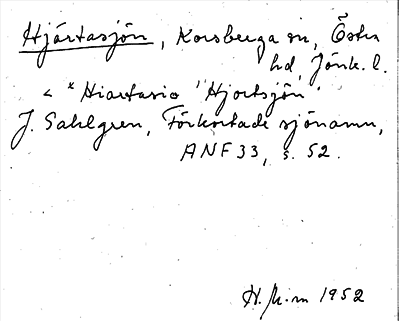 Hjärtasjön, Korsberga sn, Östra
hd, Jönk. l.
< *Hiartasio 'Hjortsjön'
J. Sahlgren, Förkortade sjönamn,
ANF 33, s. 52.
H. St-m 1952